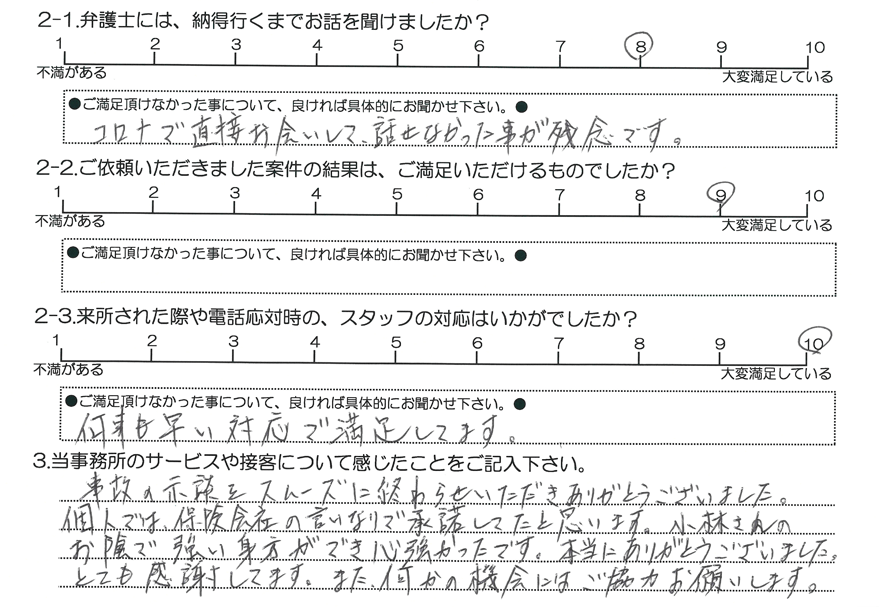 2-1.弁護士には、納得行くまでお話を聞けましたか？
1 2 3 4 5 6 7 8 9 10
不満がある 大変満足している
●ご満足頂けなかった事について、良ければ具体的にお聞かせ下さい。●
コロナで直接お会いして、話せなかった事が残念です。
2-2.ご依頼いただきました案件の結果は、ご満足いただけるものでしたか？
1 2 3 4 5 6 7 8 9 10
不満がある 大変満足している
●ご満足頂けなかった事について、良ければ具体的にお聞かせ下さい。●
2-3.来所された際や電話応対時の、スタッフの対応はいかがでしたか？
1 2 3 4 5 6 7 8 9 10
不満がある 大変満足している
●ご満足頂けなかった事について、良ければ具体的にお聞かせ下さい。●
何事も早い対応で満足してます。
3.当事務所のサービスや接客について感じたことをご記入下さい。
事故の示談をスムーズに終わらせいただきありがとうございました。
個人では、保険会社の言いなりで承諾してたと思います。小林さんの
お陰で強い身方ができ心強かったです。本当にありがとうございました。
とても感謝してます。また、何かの機会にはご協力お願いします。